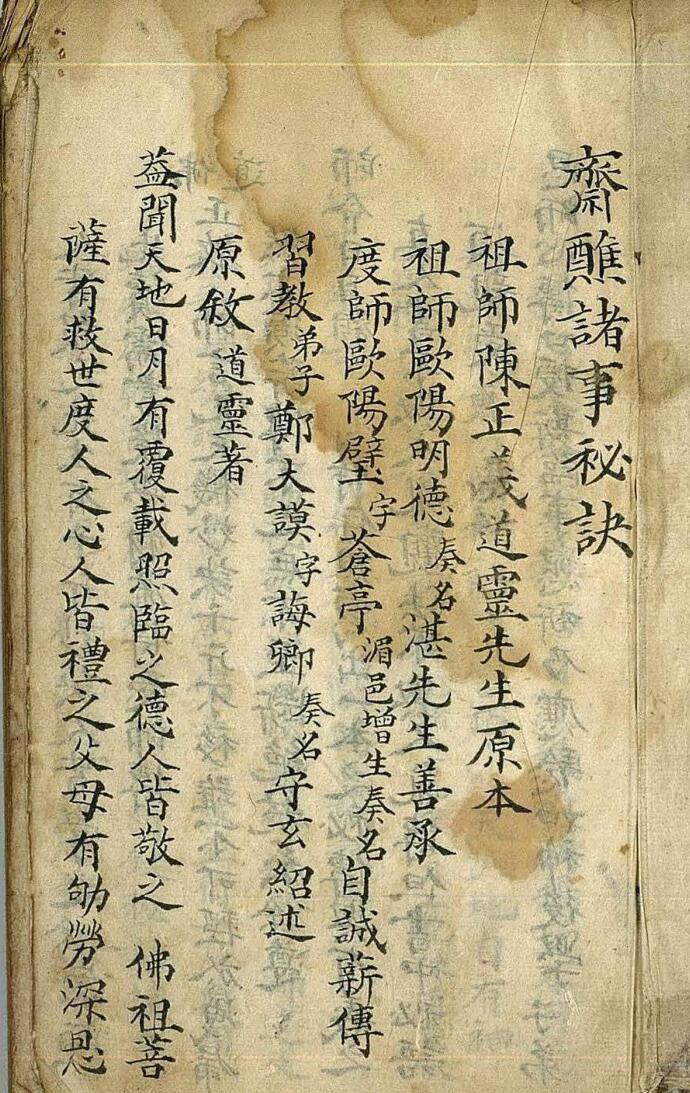 齋醮諸事秘訣
祖師陳正義道靈先生原本
祖師歐陽明德奏名湛先生善承
度師歐陽壁字蒼亭湄邑增生奏名自誠薪傳
習教弟子鄭大謨字誨卿奏名守玄紹述
原敘道靈著
蓋聞天地日月有覆載照臨之德人皆敬之 佛祖菩
薩有救世度人之心人皆禮之父母有劬勞深恩